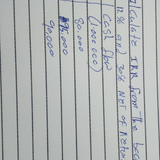 Calculate IRR from the
12% and 30% Net of Return
Cash flow
(1000 000)
80.000
95.000
90,000